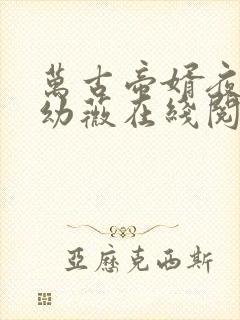 萬古帝婿夜
幼薇在綫閱
亞歷克西斯